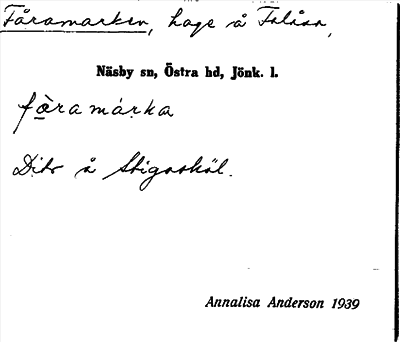 Fåramarken, hage å Falåsa,
Näsby sn, Östra hd, Jönk. l.
fåramárka
Dito å Stigaskäl.
Annalisa Anderson 1939